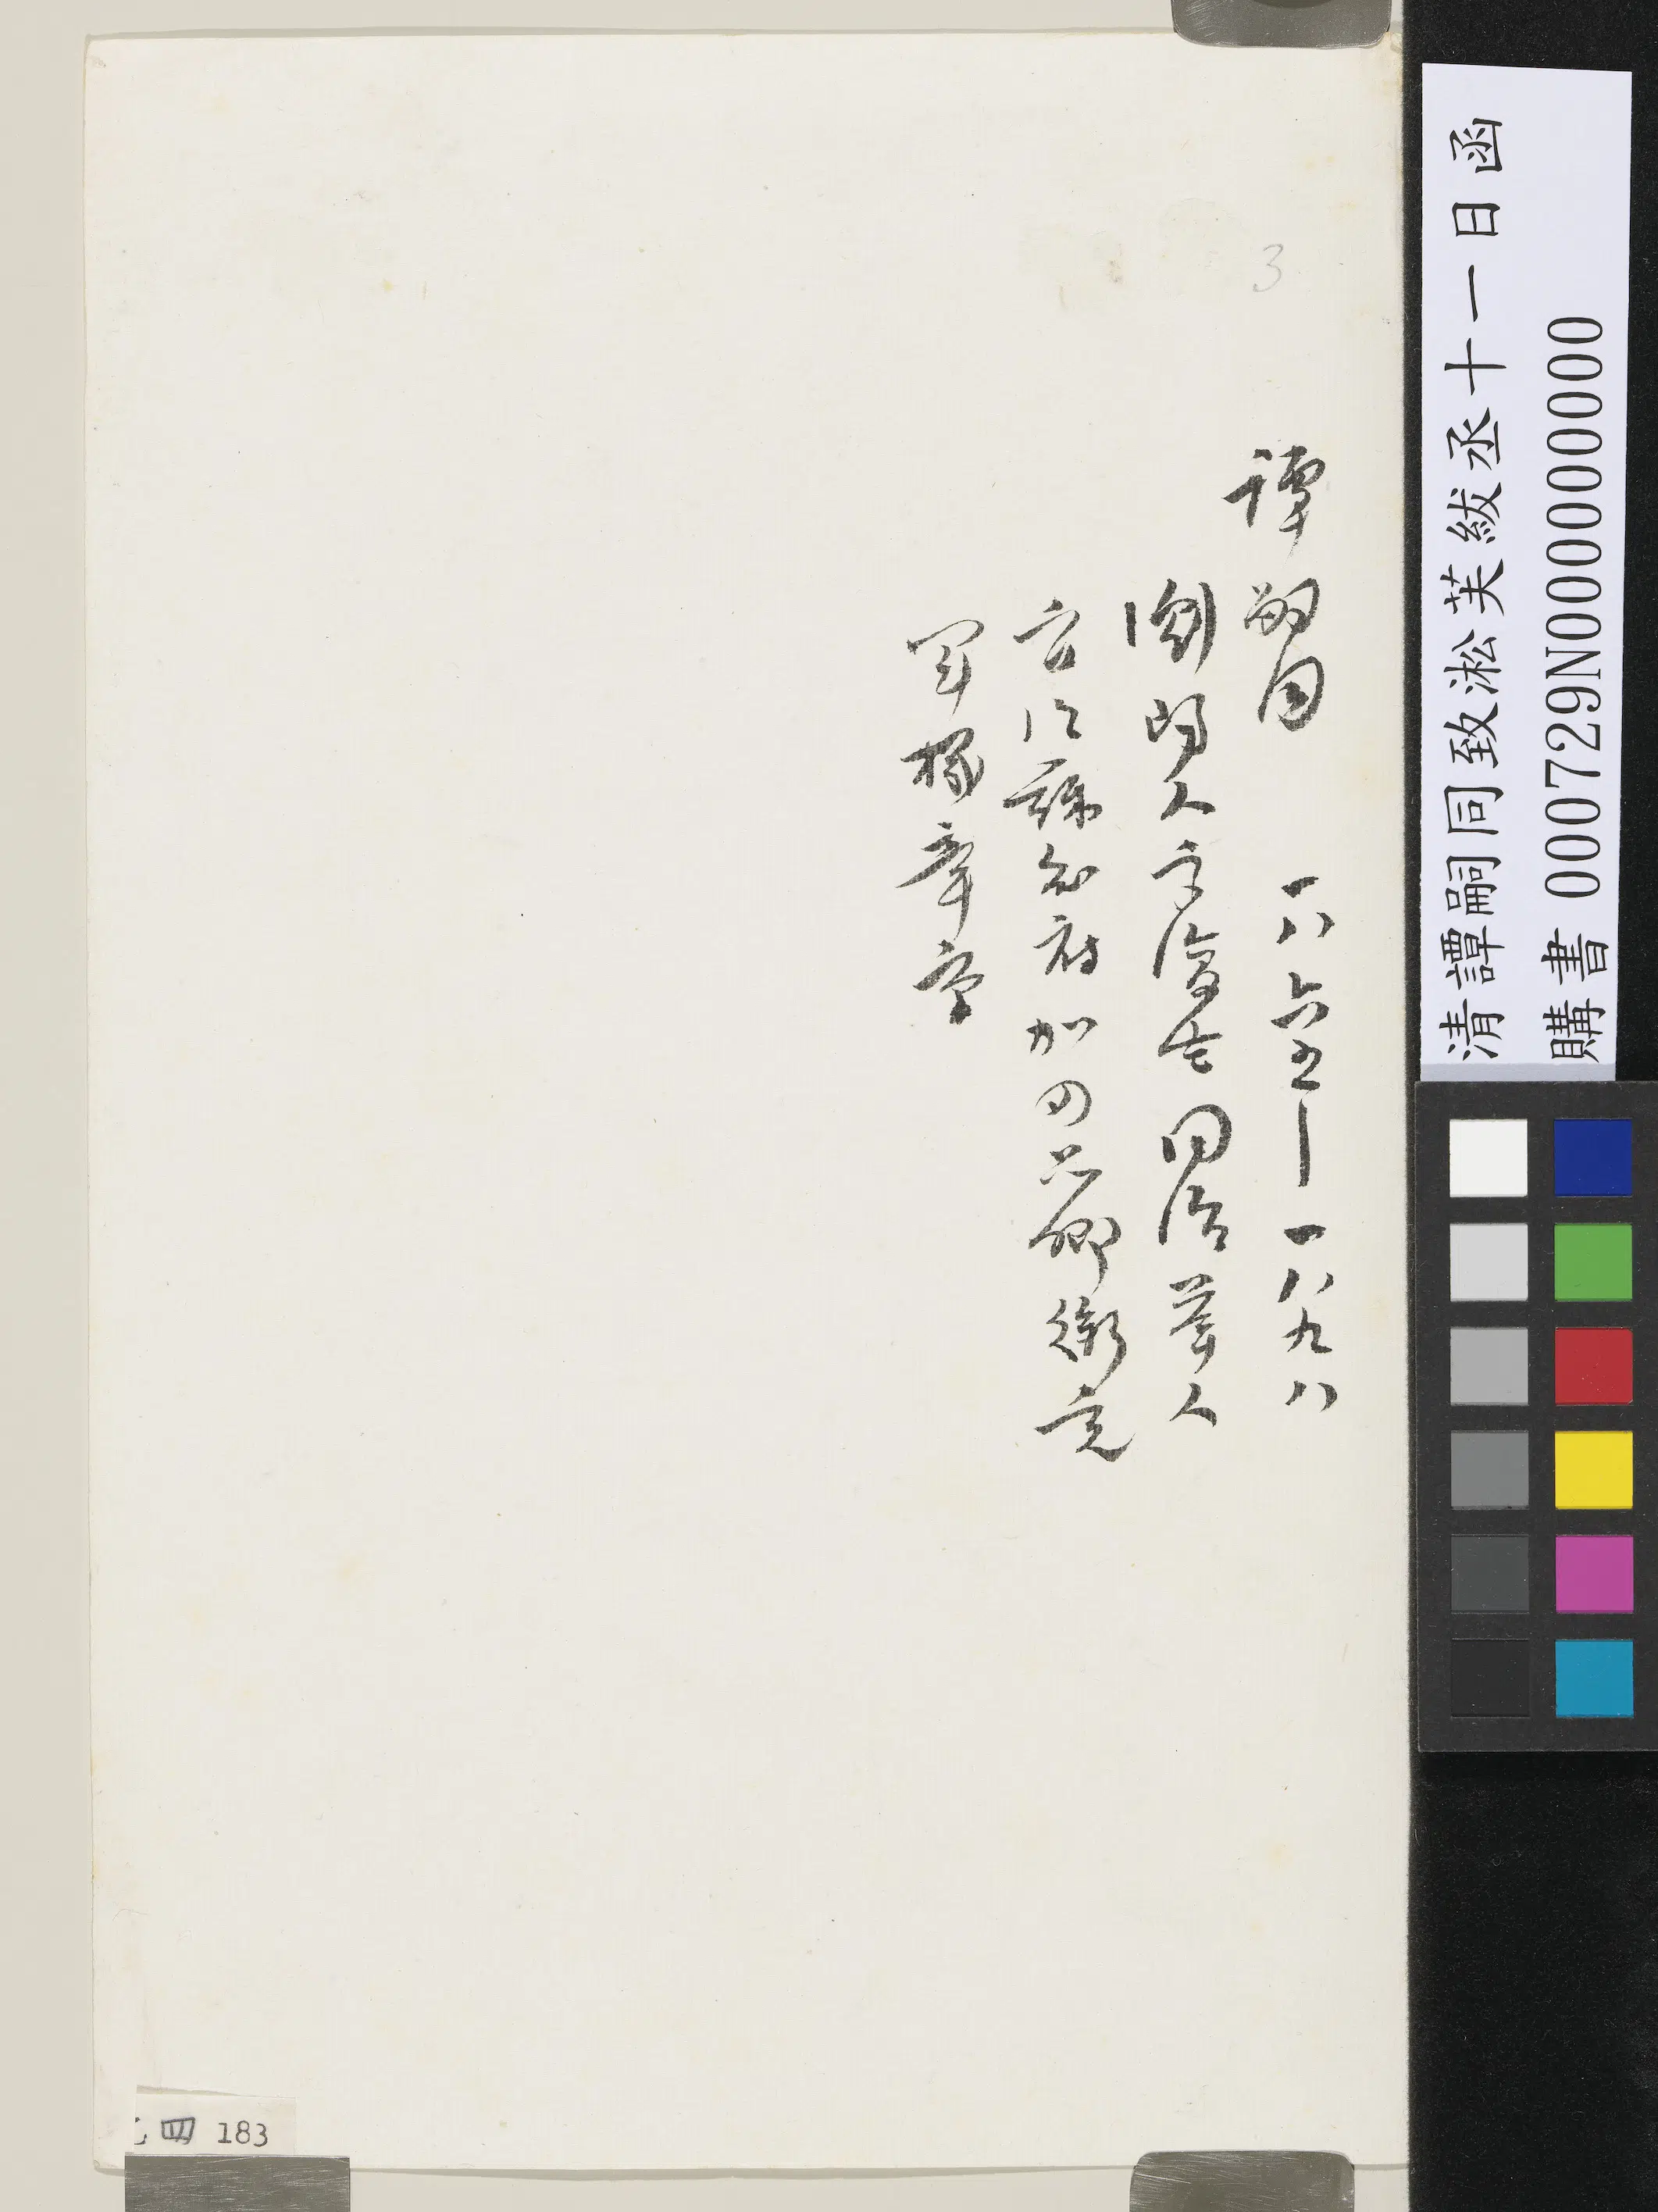 3
譚嗣同 一八六五—一八九八
瀏陽人字復生同治舉人
官江蘇知府加四品卿銜充
軍機章京
清譚嗣同致淞芙紱丞十一日函
購書 000729N000000000
四 183